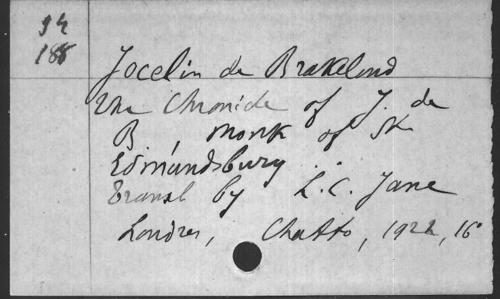 94
188
Jocelin de Brakelond
The Chronicle of J. de
B monk of St.
Edmundsbury ..
Transl by L.C. Jane
Londres, Chatto, 1922, 16°